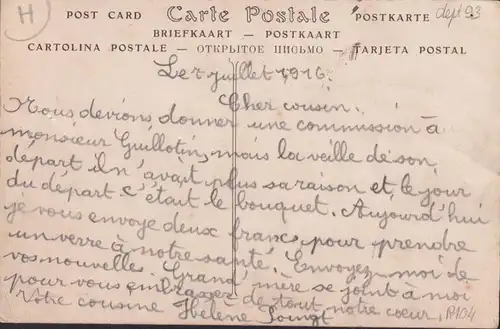 H
dept 93
POST CARD Carte Postale POSTKARTE
BRIEFKAART — POSTKAART
CARTOLINA POSTALE — ОТКРЫТОЕ ПИСЬМО — TARJETA POSTAL
Le 2 juillet 1916.
Cher cousin.
Nous devions donner une commission à
monsieur Guillotin, mais la veille de son
départ il n'avait plus sa raison et, le jour
du départ c'était le bouquet. Aujourd'hui
je vous envoye deux franc, pour prendre
un verre à notre santé. Envoyez moi de
vos nouvelles. Grand' mère se joint à moi
pour vous embrasser de tout notre cœur.
Votre cousine Hélène
R104